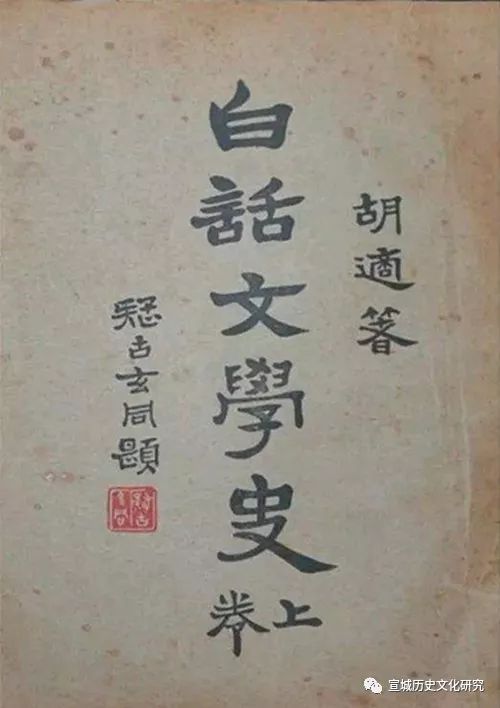 胡適箸
白話文學史
上卷
疑古玄同題
疑古玄同
宣城历史文化研究